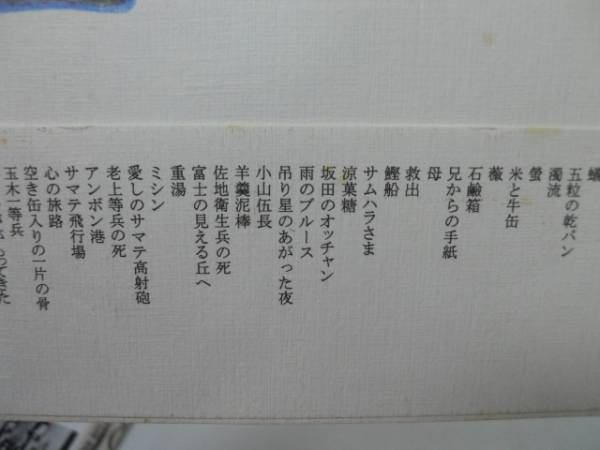 蟻
五粒の乾パン
濁流
螢
米と牛缶
薇
石鹸箱
兄からの手紙
母
救出
鰹船
サムハラさま
涼菓糖
坂田のオッチャン
雨のブルース
吊り星のあがった夜
小山伍長
羊羹泥棒
佐地衛生兵の死
富士の見える丘へ
重湯
ミシン
愛しのサマテ高射砲
老上等兵の死
アンボン港
サマテ飛行場
心の旅路
空き缶入りの一片の骨
玉木一等兵
ってきた